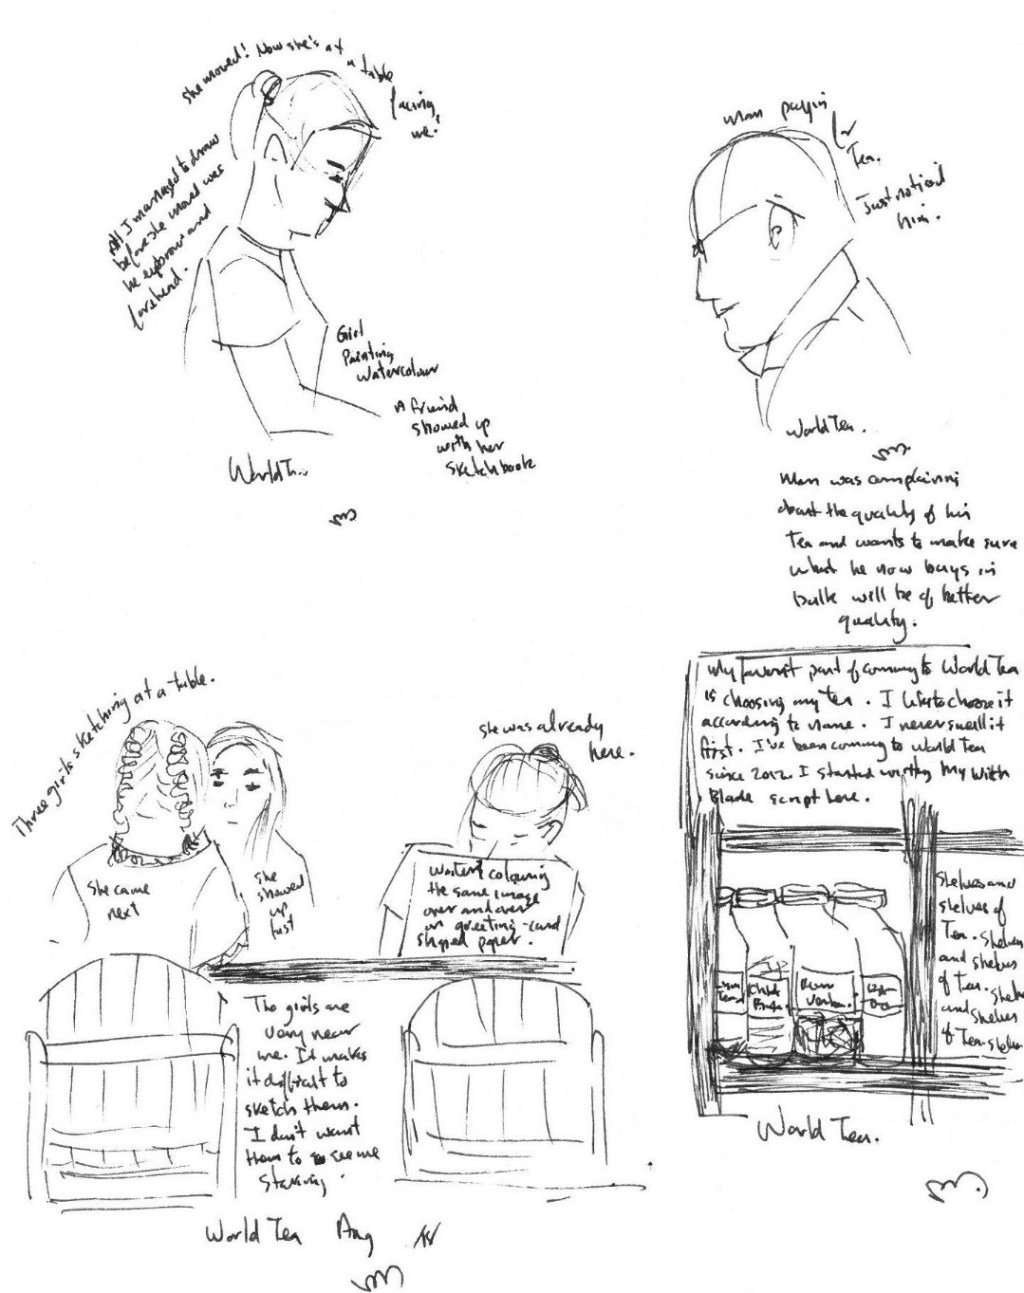 She moved! Now she's at
a table
facing
me!
All I managed to draw
before she moved was
he eyebrow and
forehead.
Girl
Painting
Watercolour
A friend
showed up
with her
sketchbook
World Tea
Man payin
for
Tea.
Just noticed
him.
World Tea.
Man was complaining
about the quality of his
Tea and wants to make sure
what he now buys in
bulk will be of better
quality.
Three girls sketching at a table.
She came
next
she
showed
up
first
she was already
here.
Water colouring
the same image
over and over
on greeting-card
shaped paper.
The girls are
very near
me. It makes
it difficult to
sketch them.
I don't want
them to see me
staring.
World Tea Aug
My favorist part of coming to World Tea
is choosing my tea. I like to choose it
according to name. I never smell it
first. I've been coming to World Tea
since 2012. I started writing My With
Blade script here.
Shelves and
shelves of
Tea. Shelves
and shelves
of Tea. Shelves
and shelves
of Tea. Shelves
World Tea.